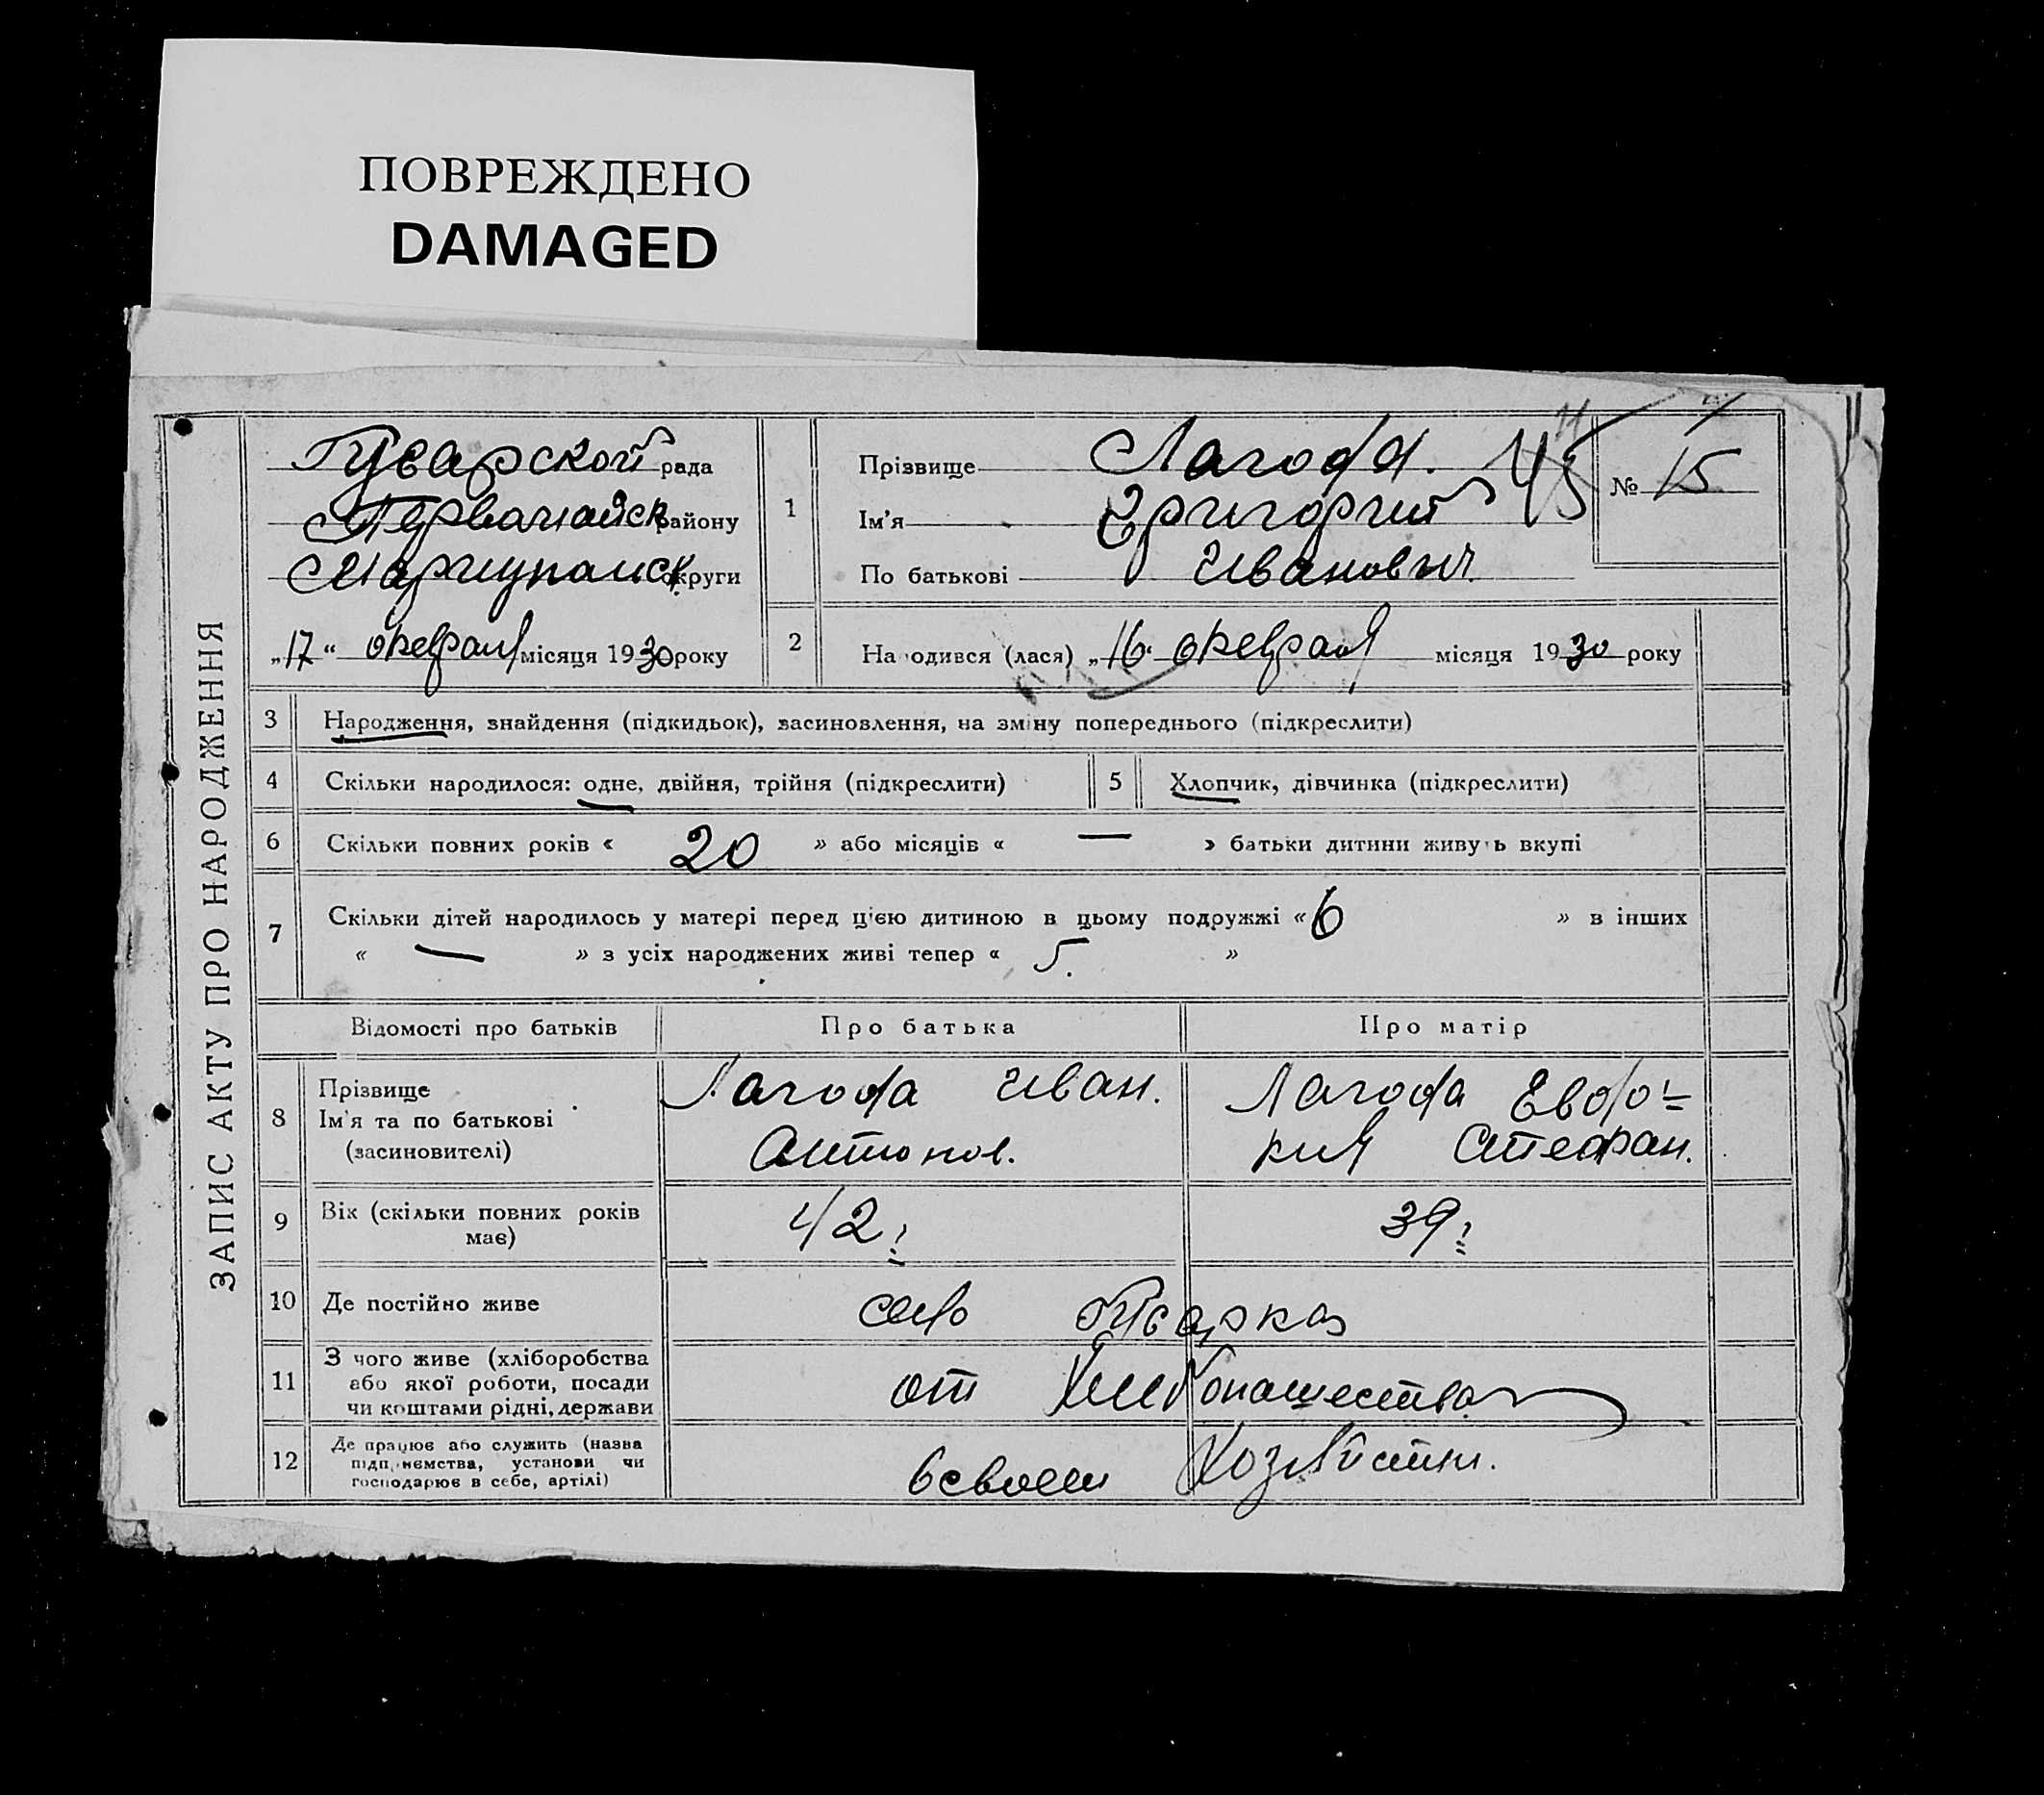 ПОВРЕЖДЕНО
DAMAGED
ЗАПИС АКТУ ПРО НАРОДЖЕННЯ
Гусарской рада
Першамайск району
Мариупольск округи
„17“ февраля місяця 1930 року
1 Прізвище Лагода. 45
Ім'я Григорий
По батькові Иванович
№ 15
2 Народився (лася) „16“ февраля місяця 1930 року
3 Народження, знайдення (підкидьок), засиновлення, на зміну попереднього (підкреслити)
4 Скільки народилося: одне, двійня, трійня (підкреслити) 5 Хлопчик, дівчинка (підкреслити)
6 Скільки повних років « 20 » або місяців « — » батьки дитини живуть вкупі
7 Скільки дітей народилось у матері перед цією дитиною в цьому подружжі « 6 » в інших
« — » з усіх народжених живі тепер « 5. »
Відомості про батьків Про батька Про матір
8 Прізвище
Ім'я та по батькові
(засиновителі)
Лагода Иван.
Антонов.
Лагода Евдо-
кия Стефан.
9 Вік (скільки повних років
має)
42. 39.
10 Де постійно живе село Гусарка
11 З чого живе (хліборобства
або якої роботи, посади
чи коштами рідні, держави
от Хлебопашества
12 Де працює або служить (назва
підприємства, установи чи
господарює в себе, артілі)
в своем Хозяйстви.